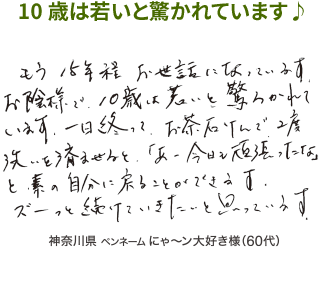 10 歳は若いと驚かれています♪
もう 15年程 お世話になっています。
お陰様で、10歳は若いと驚かれて
います。一日終って、お茶石けんで2度
洗いを済ませると、「あー今日も頑張ったな」
と、素の自分に戻ることができます。
ズーっと続けていきたいと思っています。
神奈川県 ペンネーム にゃ〜ン大好き様（60代）